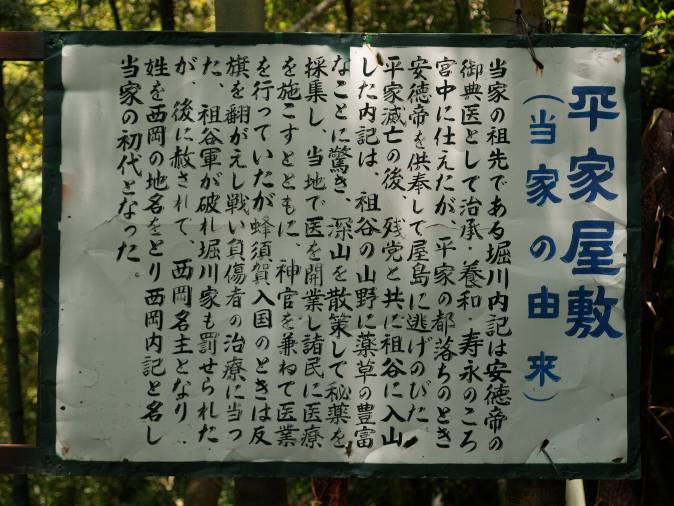 平家屋敷
（当家の由来）
当家の祖先である堀川内記は安徳帝の
御典医として治承・養和・寿永のころ
宮中に仕えたが、平家の都落ちのとき
安徳帝を供奉して屋島に逃げのびた
平家滅亡の後、残党と共に祖谷に入山
した内記は、祖谷の山野に薬草の豊富
なことに驚き、深山を散策して秘薬を
採集し、当地で医を開業し諸民に医療
を施こすとともに、神官を兼ねて医業
を行っていたが蜂須賀入国のときは反
旗を翻がえし戦い負傷者の治療に当っ
た、祖谷軍が破れ堀川家も罰せられた
が、後に赦されて、西岡名主となり、
姓を西岡の地名をとり西岡内記と名し
当家の初代となった。